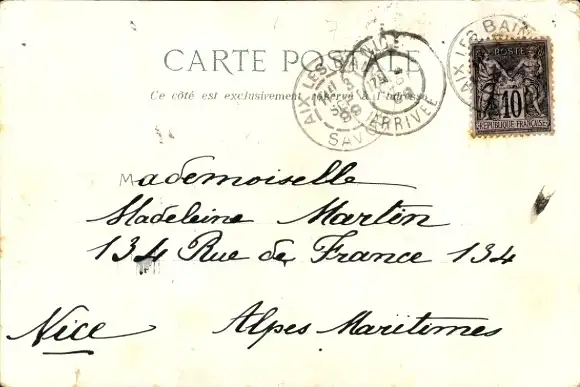 CARTE POSTALE
Ce côté est exclusivement réservé à l'adresse
AIX LES BAINS
SAVOIE
NICE
ARRIVÉE
AIX LES BAINS
POSTE
10
RÉPUBLIQUE FRANÇAISE
Mademoiselle
Madeleine Martin
134 Rue de France 134
Nice Alpes Maritimes